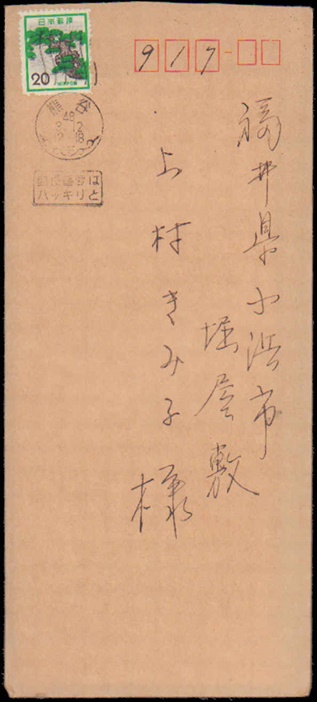 日本郵便
20
917
48
福井県小浜市
堀屋敷
上村きみ子
様
郵便番号は
ハッキリと